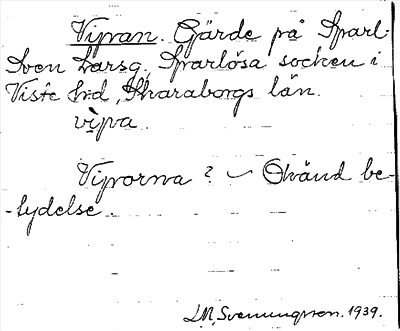 Vipvan. Gärde på Sparl-
Sven Larsg. Sparlösa socken i
Viste hd, Skaraborgs län.
vi̱pva.
Vipvorna? – Okänd be-
-tydelse.
L.M. Svenungsson. 1939.